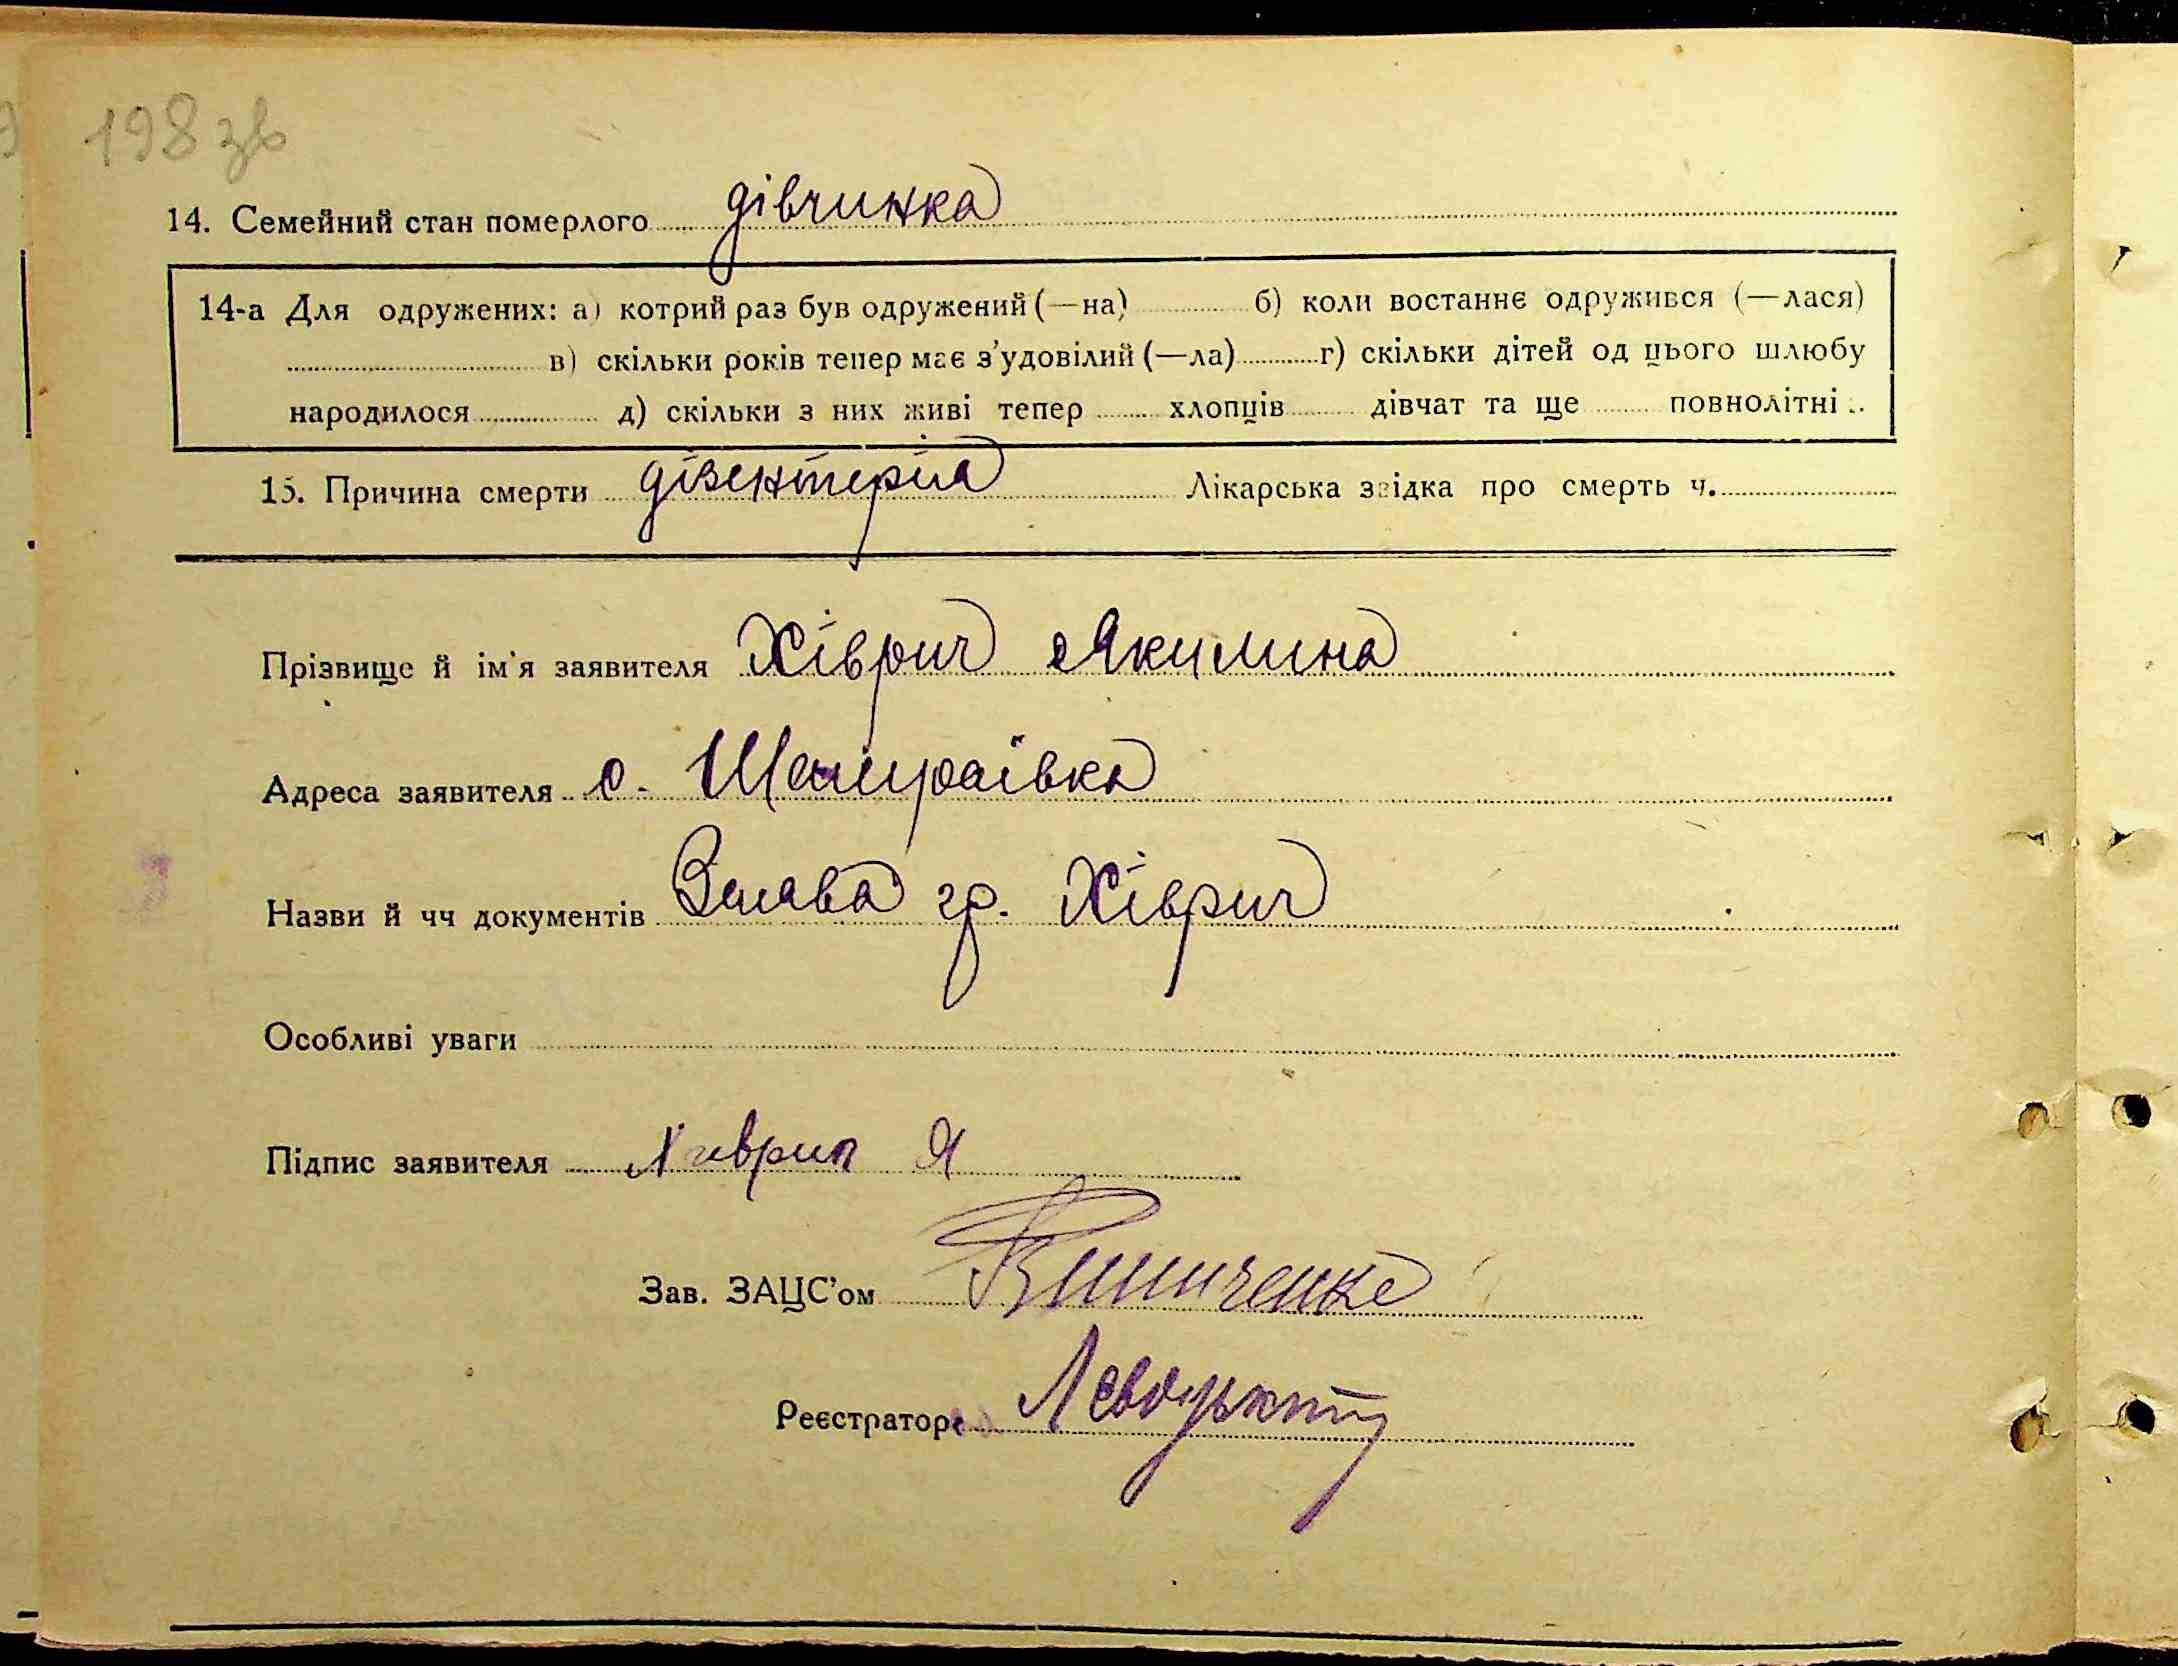 198 зв
14. Семейний стан померлого дівчинка
14-а Для одружених: а) котрий раз був одружений (—на) б) коли востаннє одружився (—лася)
в) скільки років тепер має з’удовілий (—ла) г) скільки дітей од цього шлюбу
народилося д) скільки з них живі тепер хлопців дівчат та ще повнолітні
15. Причина смерти дізентерія Лікарська звідка про смерть ч.
Прізвище й ім’я заявителя Хіврич Якилина
Адреса заявителя с. Шамраївка
Назви й чч документів Заява гр. Хіврич
Особливі уваги
Підпис заявителя Хиврич Я
Зав. ЗАЦС’ом
Реєстратор